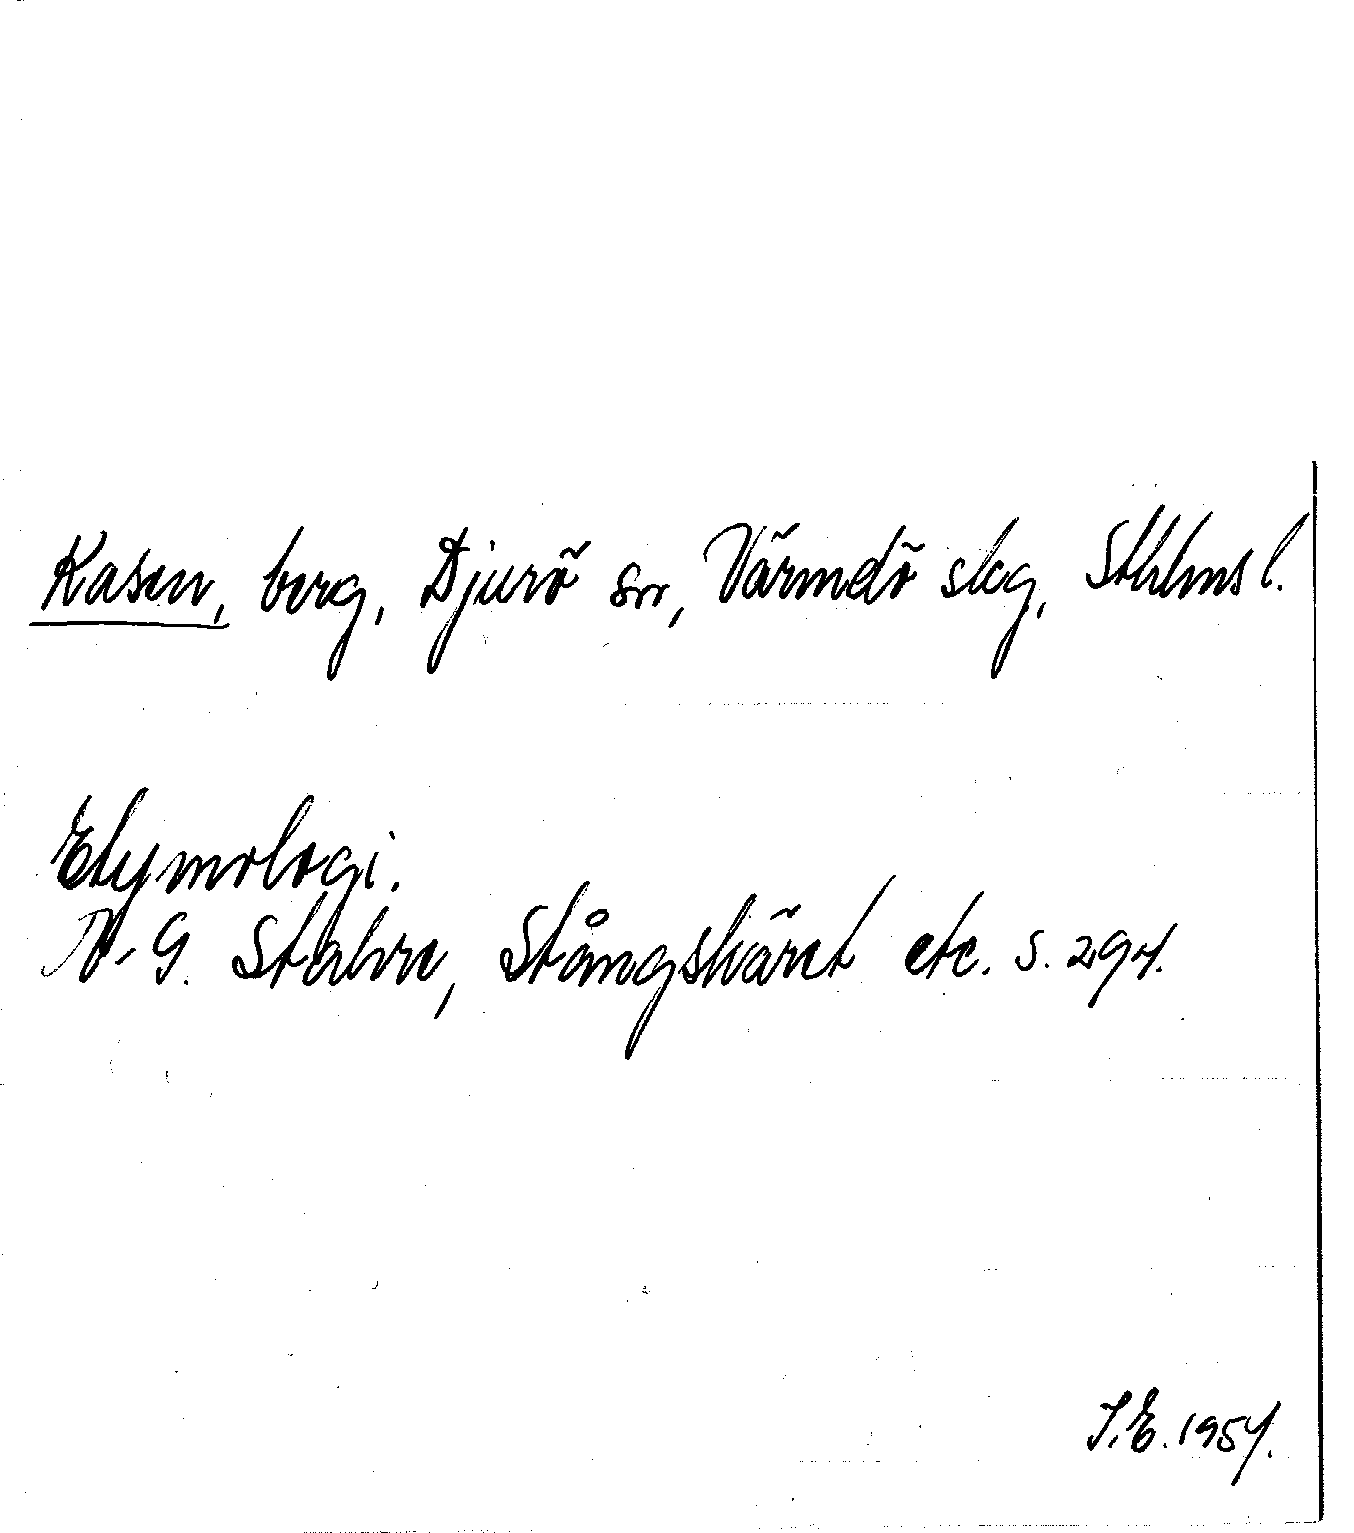 Kasen, berg, Djurö sn, Värmdö skg, Sthlms l.
Etymologi.
N.-G. Stahre, Stångskäret etc. s. 294.
I.E. 1954.